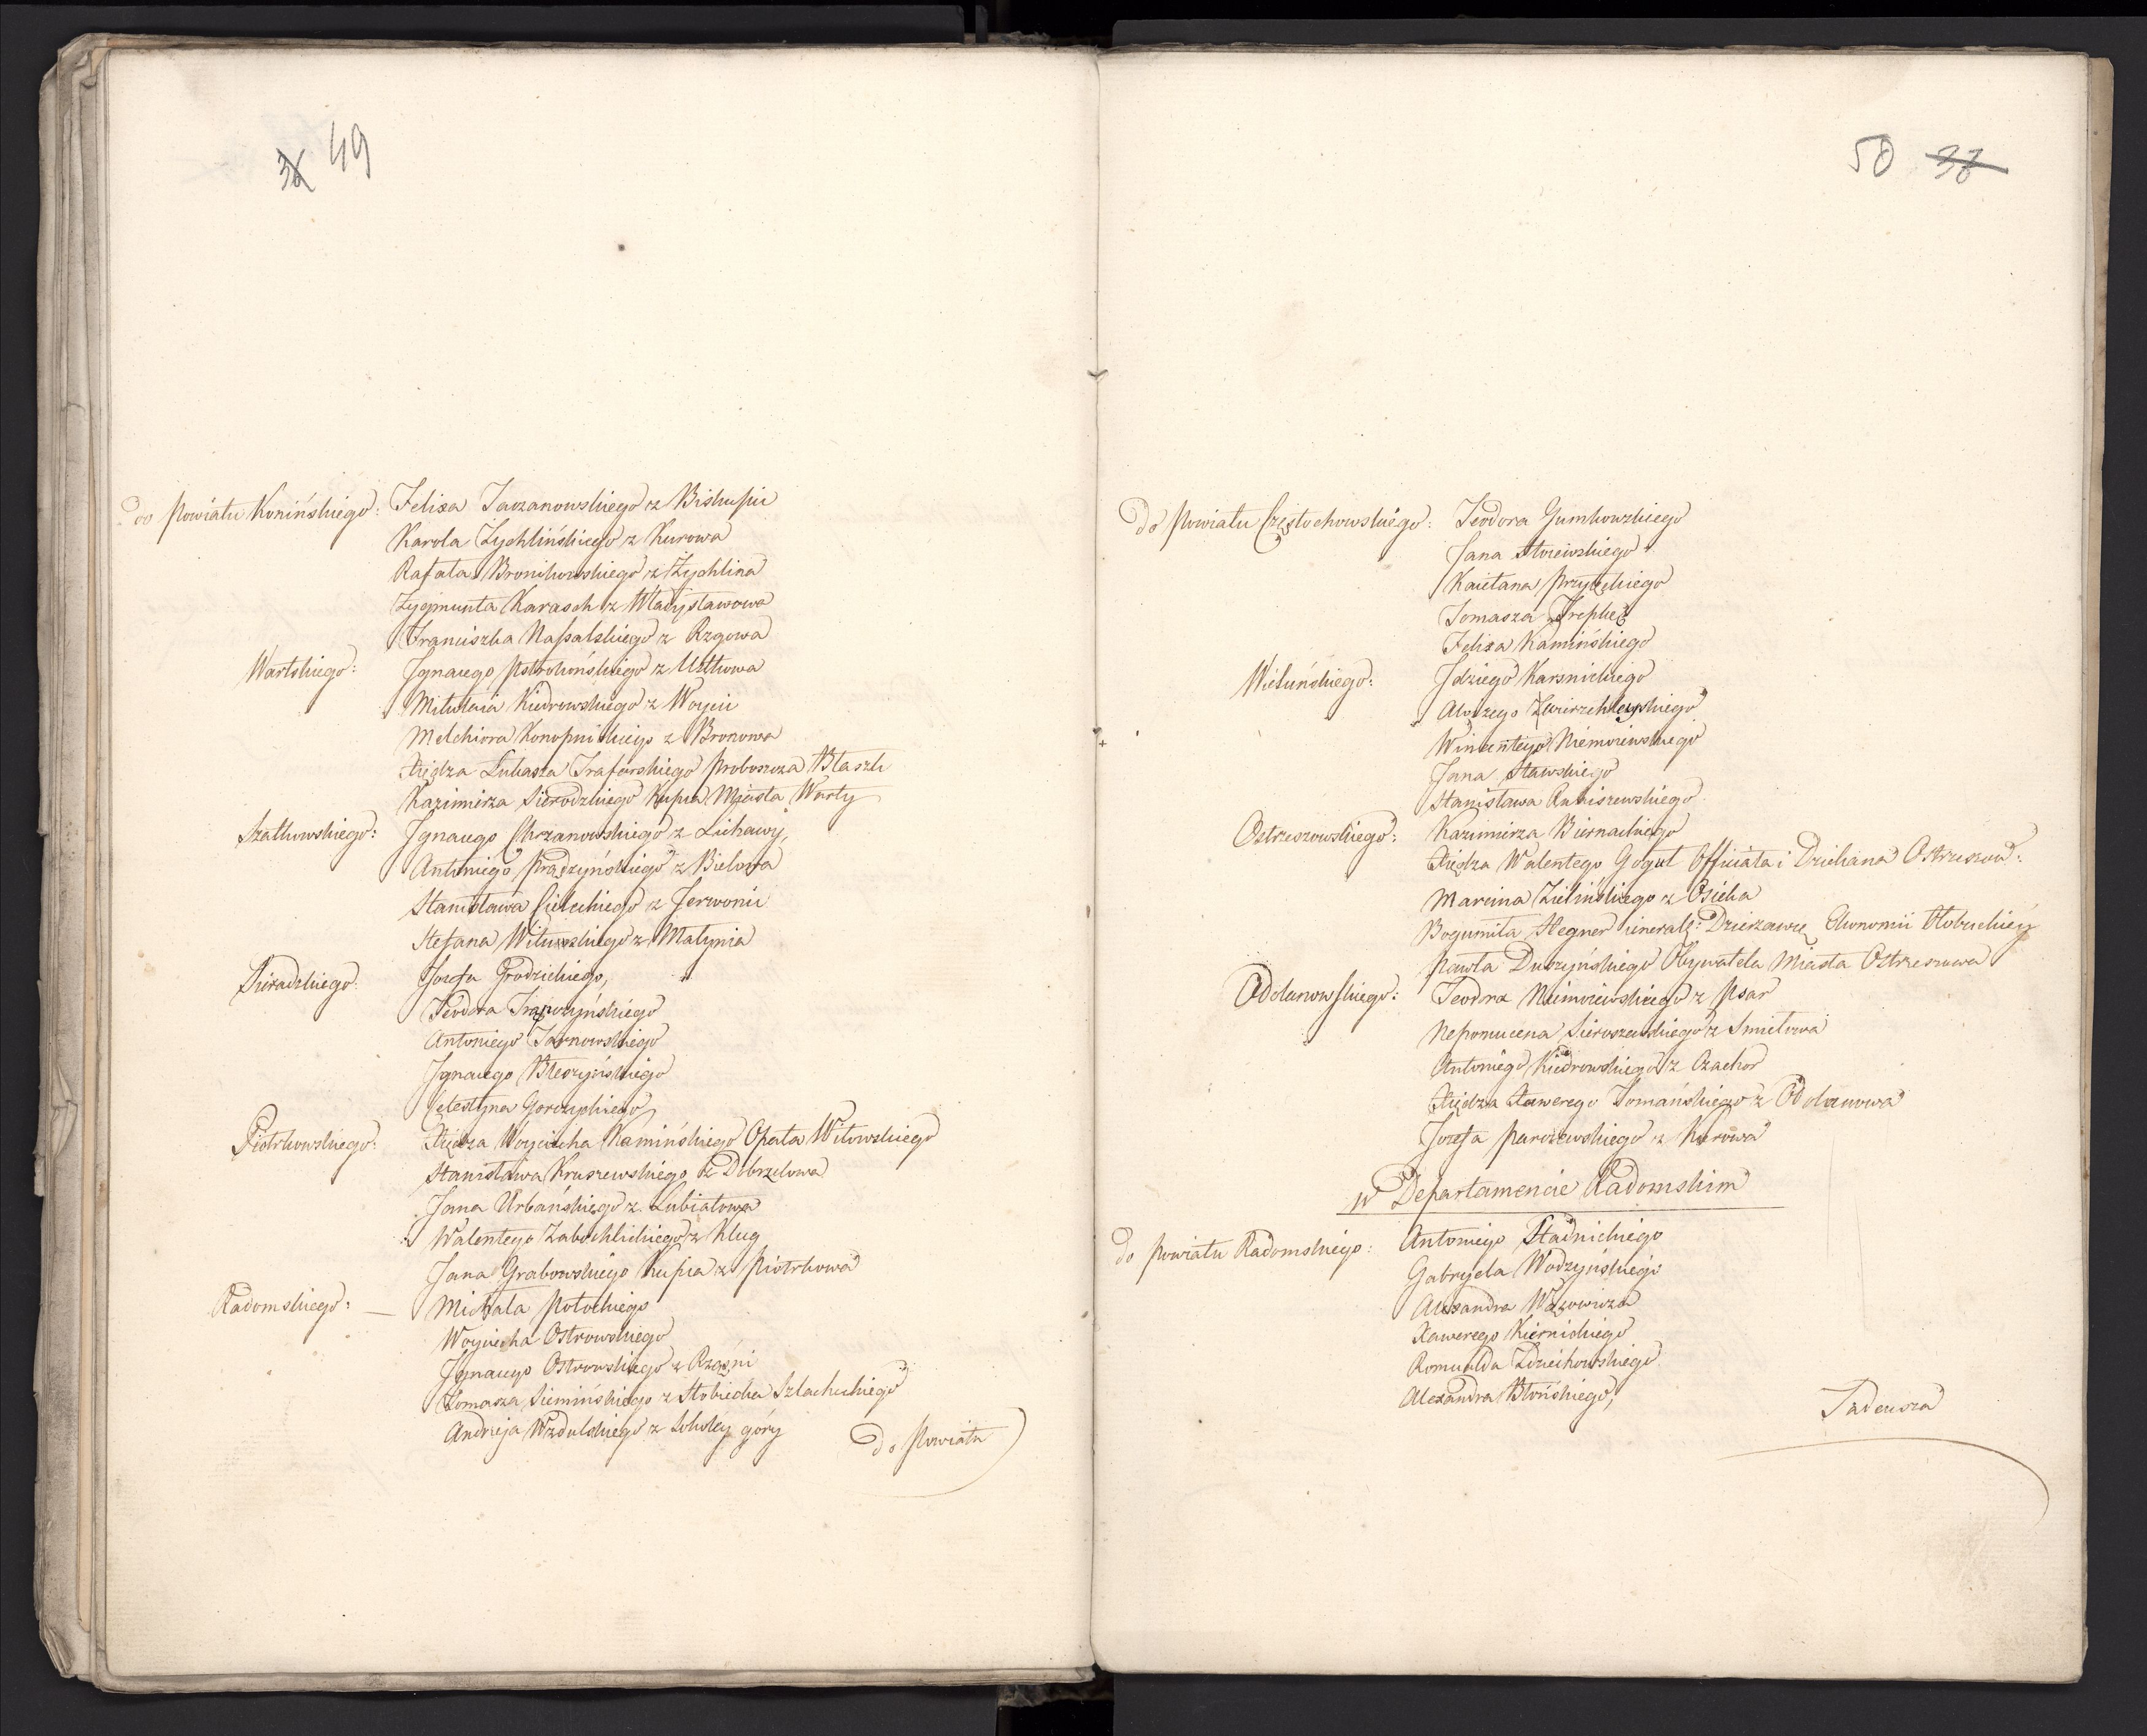 36 49
do Powiatu Konińskiego: Felixa Taczanowskiego z Biskupic
Karola Zychlińskiego z Kurowa
Rafała Bronikowskiego z Żychlina
Zygmunta Karasch z Władysławowa
Franciszka Nassalskiego z Rzgowa
Wartskiego: Jgnacego Pstrokońskiego z Ustkowa
Mikołaia Kiedrowskiego z Woycic
Melchiora Konopnickiego z Bronowa
Xiędza Łukasza Trafarskiego Proboszcza Błaszk
Kazimierza Sierodzkiego Kupca Miasta Warty
Szatkowskiego: Jgnacego Chrzanowskiego z Lichawy,
Antoniego Prądzyńskiego z Bielowa
Stanisława Cieleckiego z Jerwonic
Stefana Wituskiego z Małynia
Sieradzkiego: Jozefa Grodzickiego,
Teodora Trąpczyńskiego
Antoniego Tarnowskiego
Jgnacego Błeszyńskiego
Celestyna Gorczyckiego
Piotrkowskiego: Xiędza Woyciecha Kamińskiego Opata Witowskiego
Stanisława Kruszewskiego z Dobrzelowa
Jana Urbańskiego z Lubiatowa
Walentego Zaboklickiego z Klug
Jana Grabowskiego Kupca z Piotrkowa
Radomskiego: — Michała Potockiego
Woyciecha Ostrowskiego
Jgnacego Ostrowskiego z Rząśni
Tomasza Siemińskiego z Stobiecka Szlacheckiego
Andrzeja Wzdulskiego z Sokoley góry
do Powiatu
50 38
Do Powiatu Częstochowskiego: Teodora Gumkowskiego
Jana Stoiewskiego
Kaietana Przyłęckiego
Tomasza Trepkę
Felixa Kamińskiego
Wieluńskiego: Jdziego Karsnickiego
Aloyzego Zwierzchleyskiego
Wincentego Niemoiewskiego
Jana Stawskiego
Stanisława Rubiszewskiego
Ostrzeszowskiego: Kazimierza Biernackiego
Xiędza Walentego Goguł Officiała i Dziekana Ostrzeszow:
Marcina Zielińskiego z Osieka
Bogumiła Hegner Generalż: Dzierzawcę Ekonomii Kłobuckiey
Pawła Duszyńskiego Obywatela Miasta Ostrzeszowa
Odolanowskiego: Teodora Niemoiewskiego z Psar
Nepomucena Sieroszewskiego z Smiełowa
Antoniego Kiedrowskiego z Czachor
Xiędza Xawerego Tomańskiego z Odolanowa
Jozefa Parczewskiego z Kurowa
w Departamencie Radomskim
do Powiatu Radomskiego: Antoniego Stadnickiego
Gabryela Wodzyńskiego
Alexandra Wąsowicza
Xawerego Kiernickiego
Romualda Zdziechowskiego
Alexandra Błońskiego,
Tadeusza